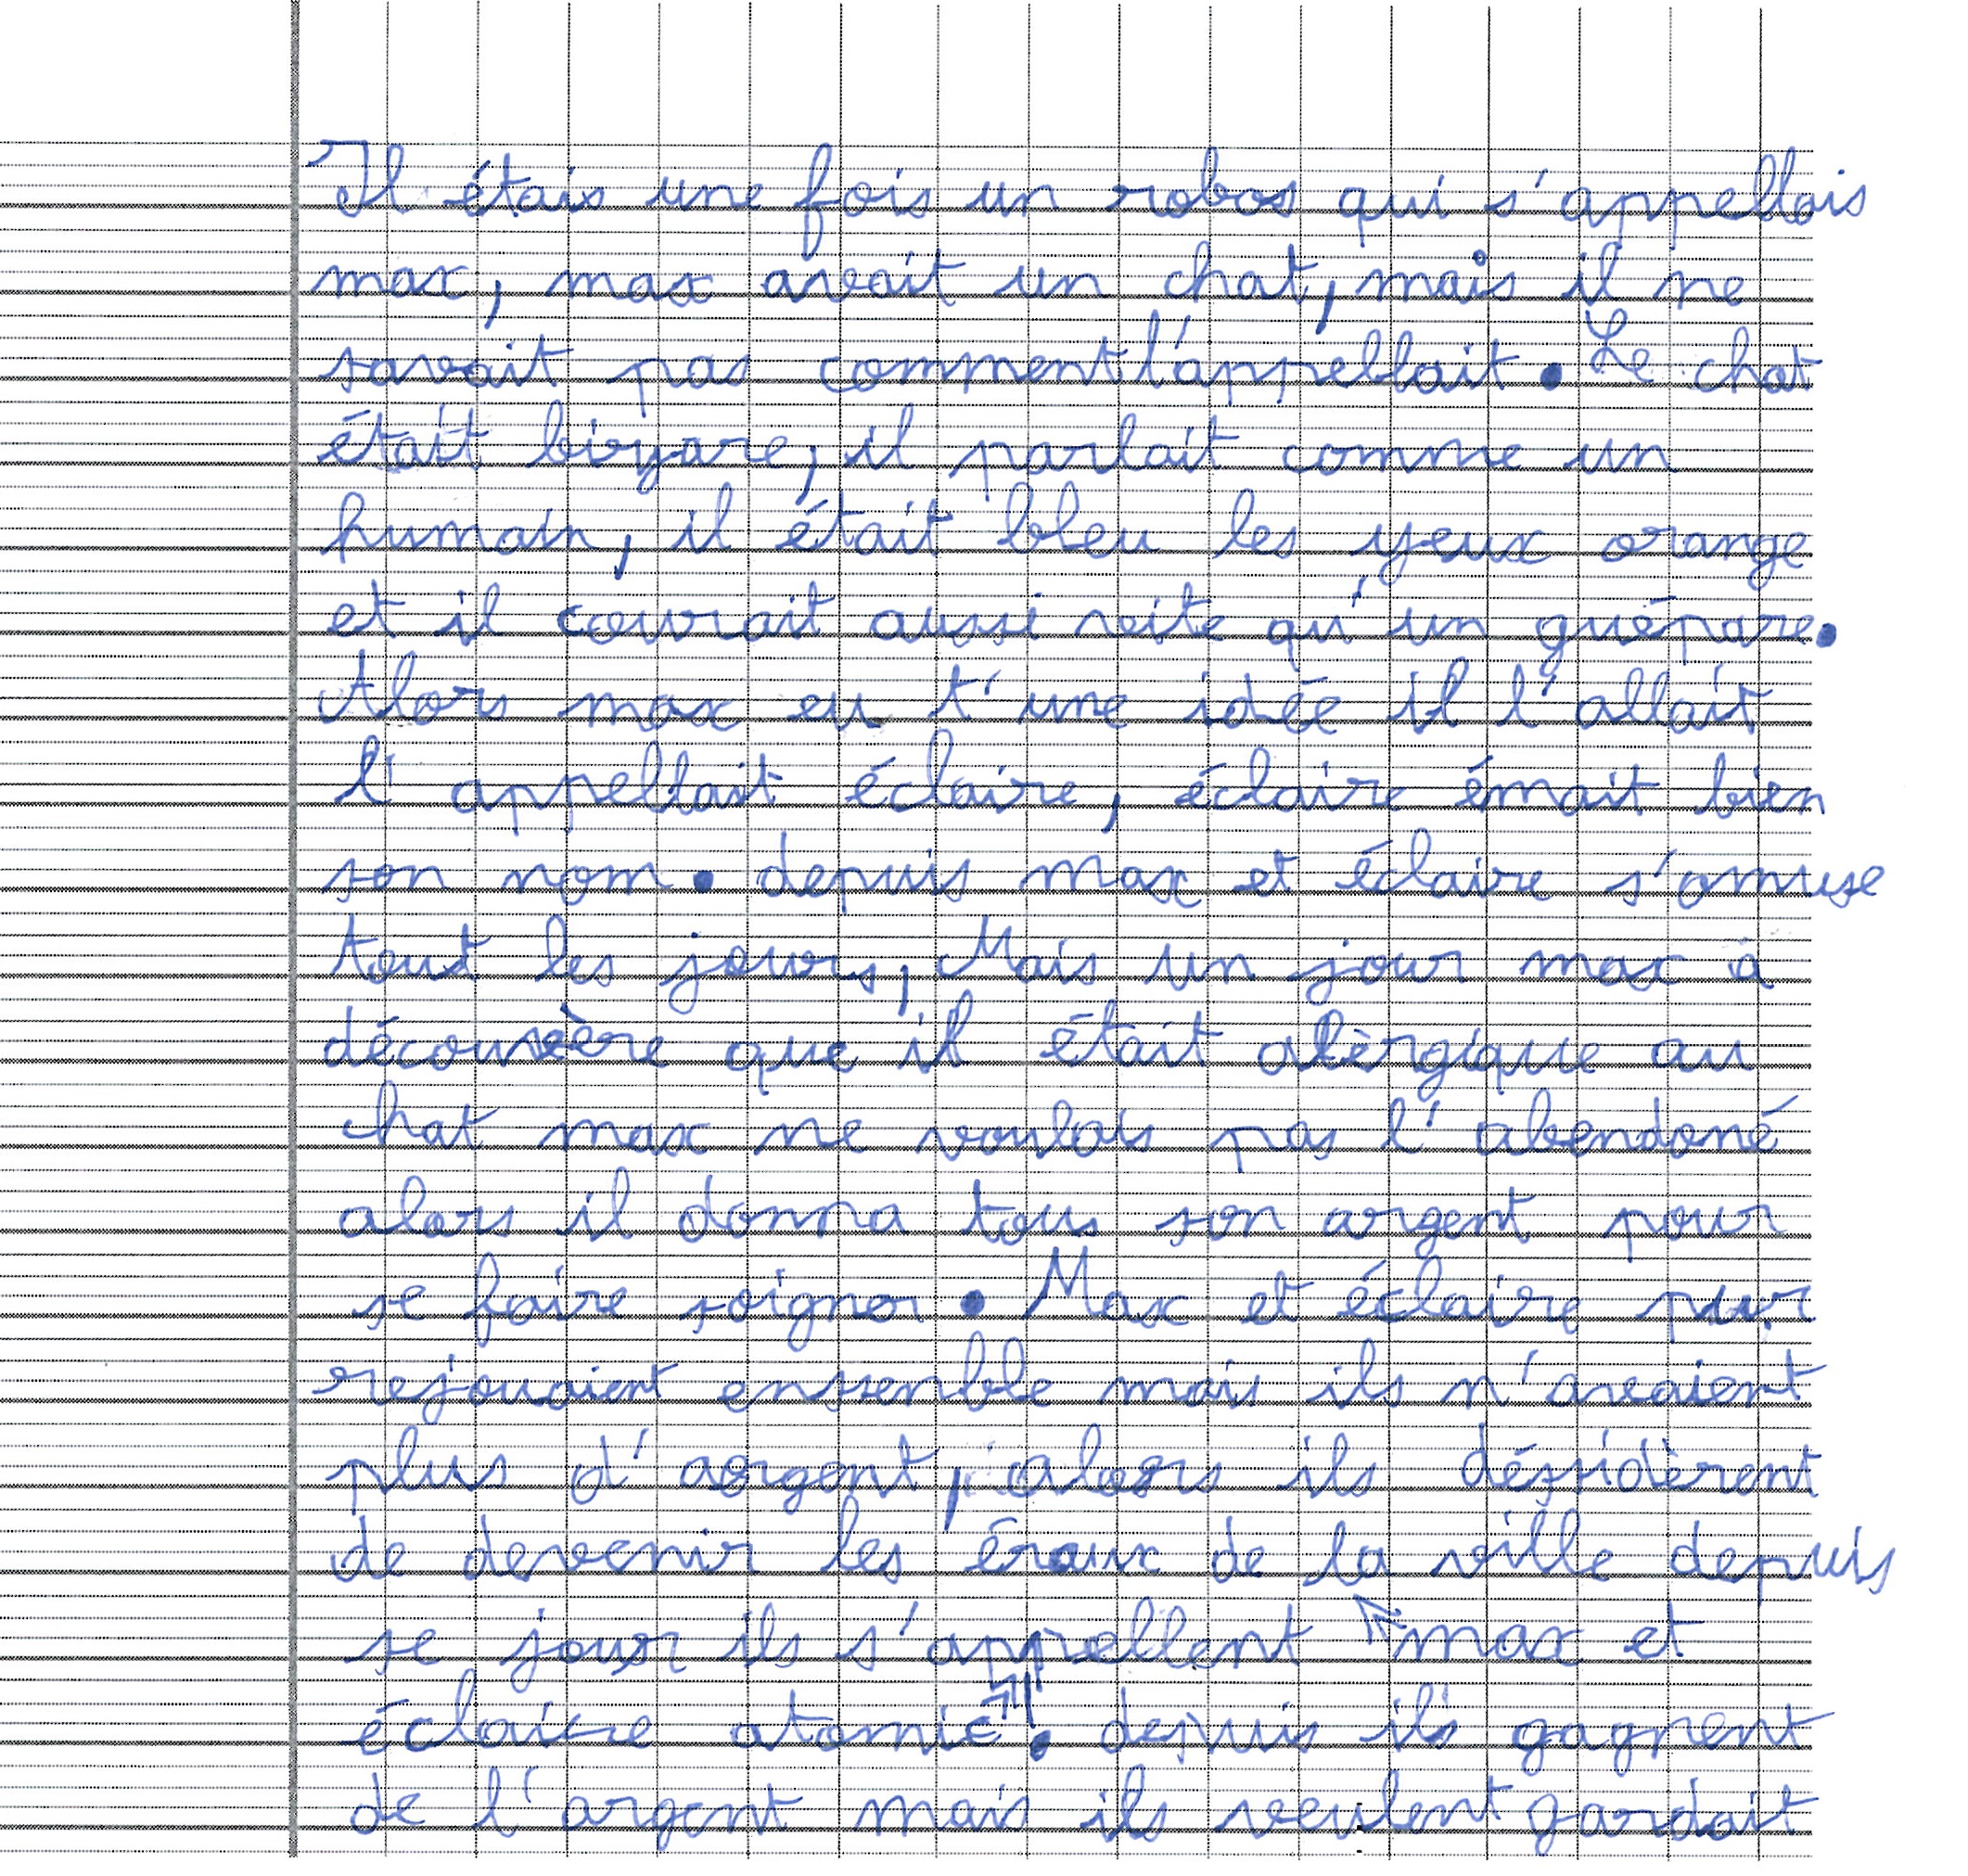 Il étais une fois un robos qui s'appellais
max, max avait un chat, mais il ne
savait pas comment l'appellait. Le chat
était bizare, il parlait comme un
humain, il était bleu les yeux orange
et il courait aussi veite qu'un guépare.
Alors max eu t'une idée il l'allait
l'appellait éclaire, éclaire émait bien
son nom. depuis max et éclaire s'amuse
tout les jours, Mais un jour max à
découvère que il était alèrgique au
chat max ne voulais pas l'abendoné
alors il donna tous son argent pour
se faire soigner. Max et éclaire pur
rejouaient enssenble mais ils n'avaient
plus d'argent, alors ils déssidèrent
de devenir les éraux de la ville depuis
se jour ils s'appellent "max et
éclaire atomic". depuis ils gagnent
de l'argent mais ils veulent gardait